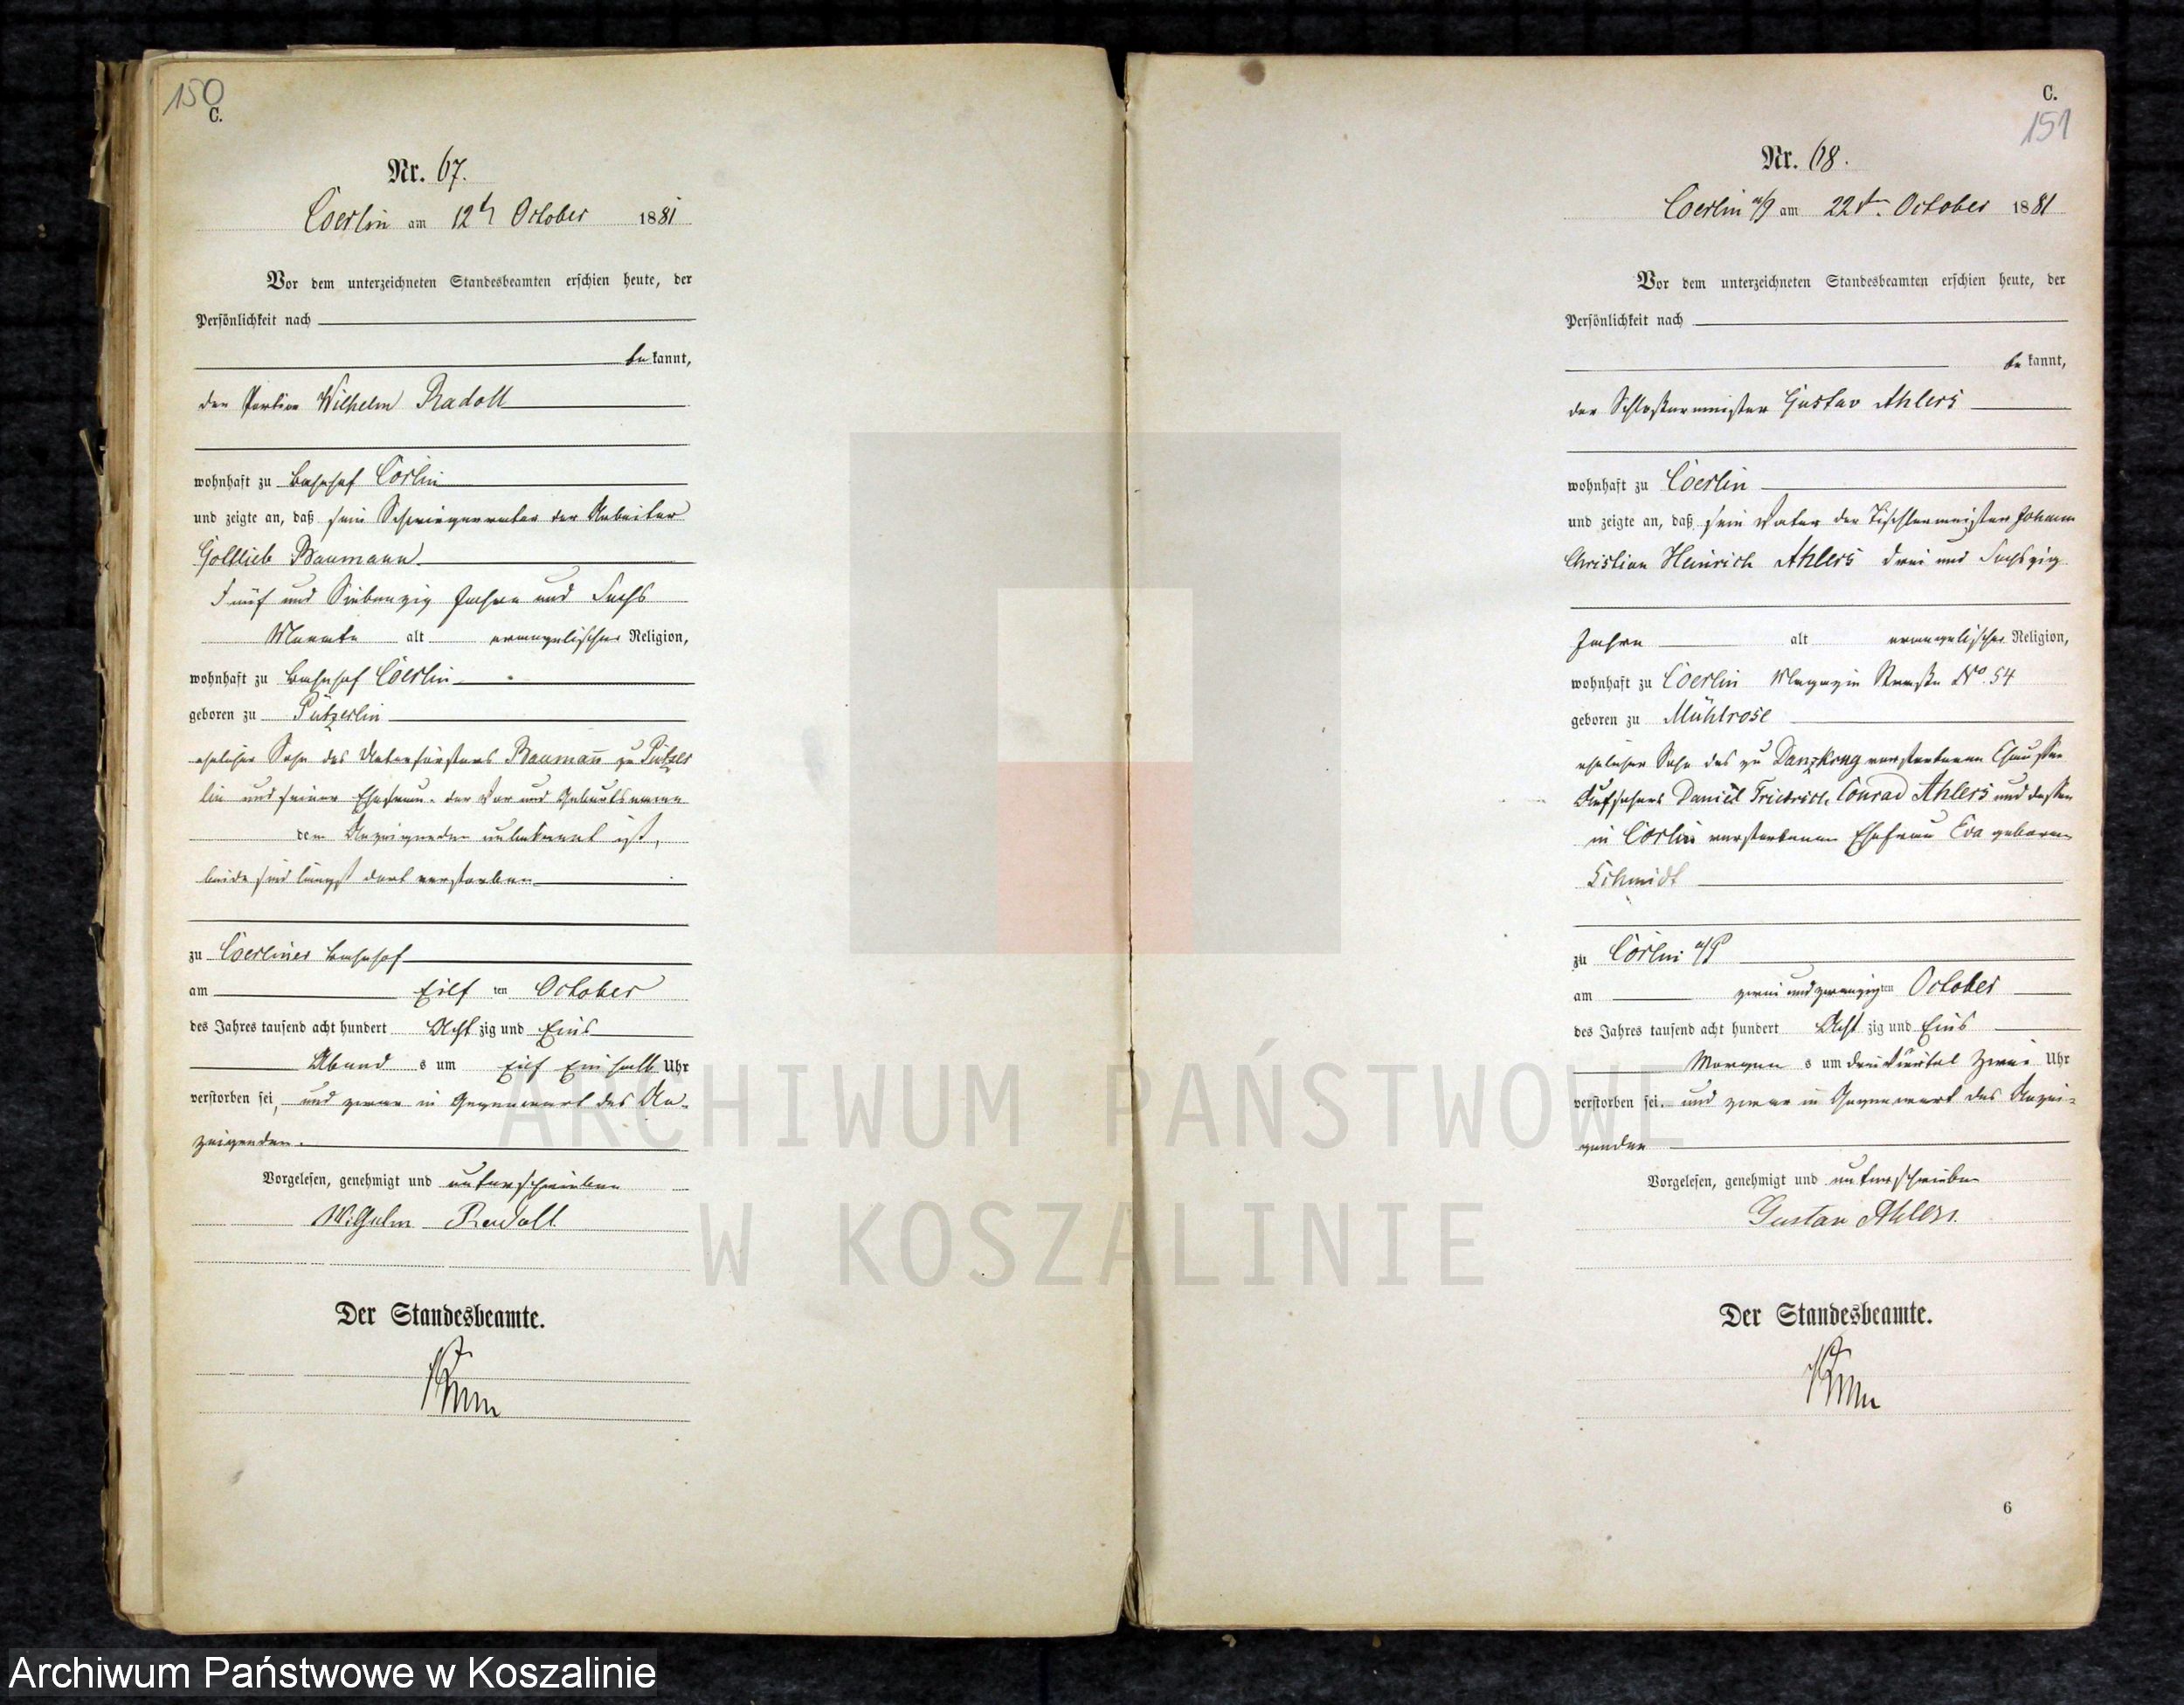 150
C.
Nr. 67.
Coerlin am 12t October 1881
Vor dem unterzeichneten Standesbeamten erschien heute, der
Persönlichkeit nach
be kannt,
der Portier Wilhelm Radoll
wohnhaft zu Bahnhof Cörlin
und zeigte an, daß sein Schwiegervater der Arbeiter
Gottlieb Baumann
Fünf und Siebenzig Jahre und Sechs
Monate alt evangelischer Religion,
wohnhaft zu Bahnhof Cöerlin
geboren zu Putzerlin
ehelicher Sohn des Unterförsters Baumañ zu Putzer
lin und seiner Ehefrau, der Vor und Geburtsname
dem Anzeigenden unbekannt ist,
beide sind längst dort verstorben
zu Coerliner Bahnhof
am Eilf ten October
des Jahres tausend acht hundert Acht zig und Eins
Abend s um Eilf Ein halb Uhr
verstorben sei, und zwar in Gegenwart des An-
zeigenden.
Vorgelesen, genehmigt und unterschrieben
Wilhelm Radoll
Der Standesbeamte.
C.
151
Nr. 68.
Coerlin a/P am 22t. October 1881
Vor dem unterzeichneten Standesbeamten erschien heute, der
Persönlichkeit nach
be kannt,
der Schlossermeister Gustav Ahlers
wohnhaft zu Cöerlin
und zeigte an, daß sein Vater der Tischlermeister Johann
Christian Heinrich Ahlers drei und Sechszig
Jahre alt evangelischer Religion,
wohnhaft zu Cöerlin Magazin Straße No 54
geboren zu Mühlrose
ehelicher Sohn des zu Danzkrug verstorbenen Chaussee
Aufsehers Daniel Friedrich Conrad Ahlers und dessen
in Cörlin verstorbenen Ehefrau Eva geborene
Schmidt
zu Cörlin a/P
am zwei und zwanzigsten October
des Jahres tausend acht hundert Acht zig und Eins
Morgen s um drei Viertel Zwei Uhr
verstorben sei. und zwar in Gegenwart des Anzei-
genden
Vorgelesen, genehmigt und unterschrieben
Gustav Ahlers.
Der Standesbeamte.
6
ARCHIWUM PAŃSTWOWE
W KOSZALINIE
Archiwum Państwowe w Koszalinie